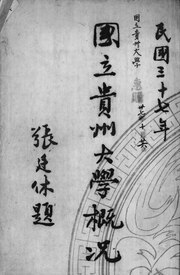 民國三十七年
國立貴州大學
國立貴州大學概況
張廷休題